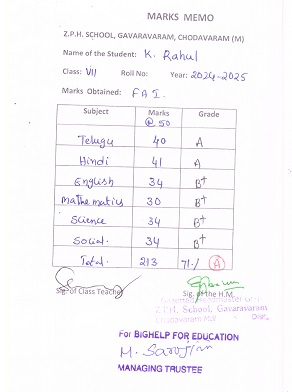 MARKS MEMO
Z.P.H. SCHOOL, GAVARAVARAM, CHODAVARAM (M)
Name of the Student: K. Rahul
Class: VII Roll No: Year: 2024-2025
Marks Obtained: FA I.
Subject Marks @ 50 Grade
Telugu 40 A
Hindi 41 A
English 34 B+
Mathematics 30 B+
Science 34 B+
Social. 34 B+
Total. 213 71.% A
Sig. of Class Teacher Sig. of the H.M.
Z.P.H. School, Gavaravaram
Chodavaram
For BIGHELP FOR EDUCATION
M. Sarojini
MANAGING TRUSTEE